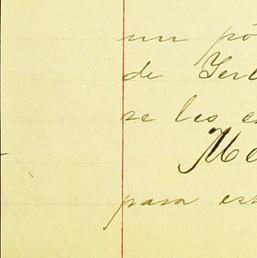 un pó
de Ter
se les e
Me
para es